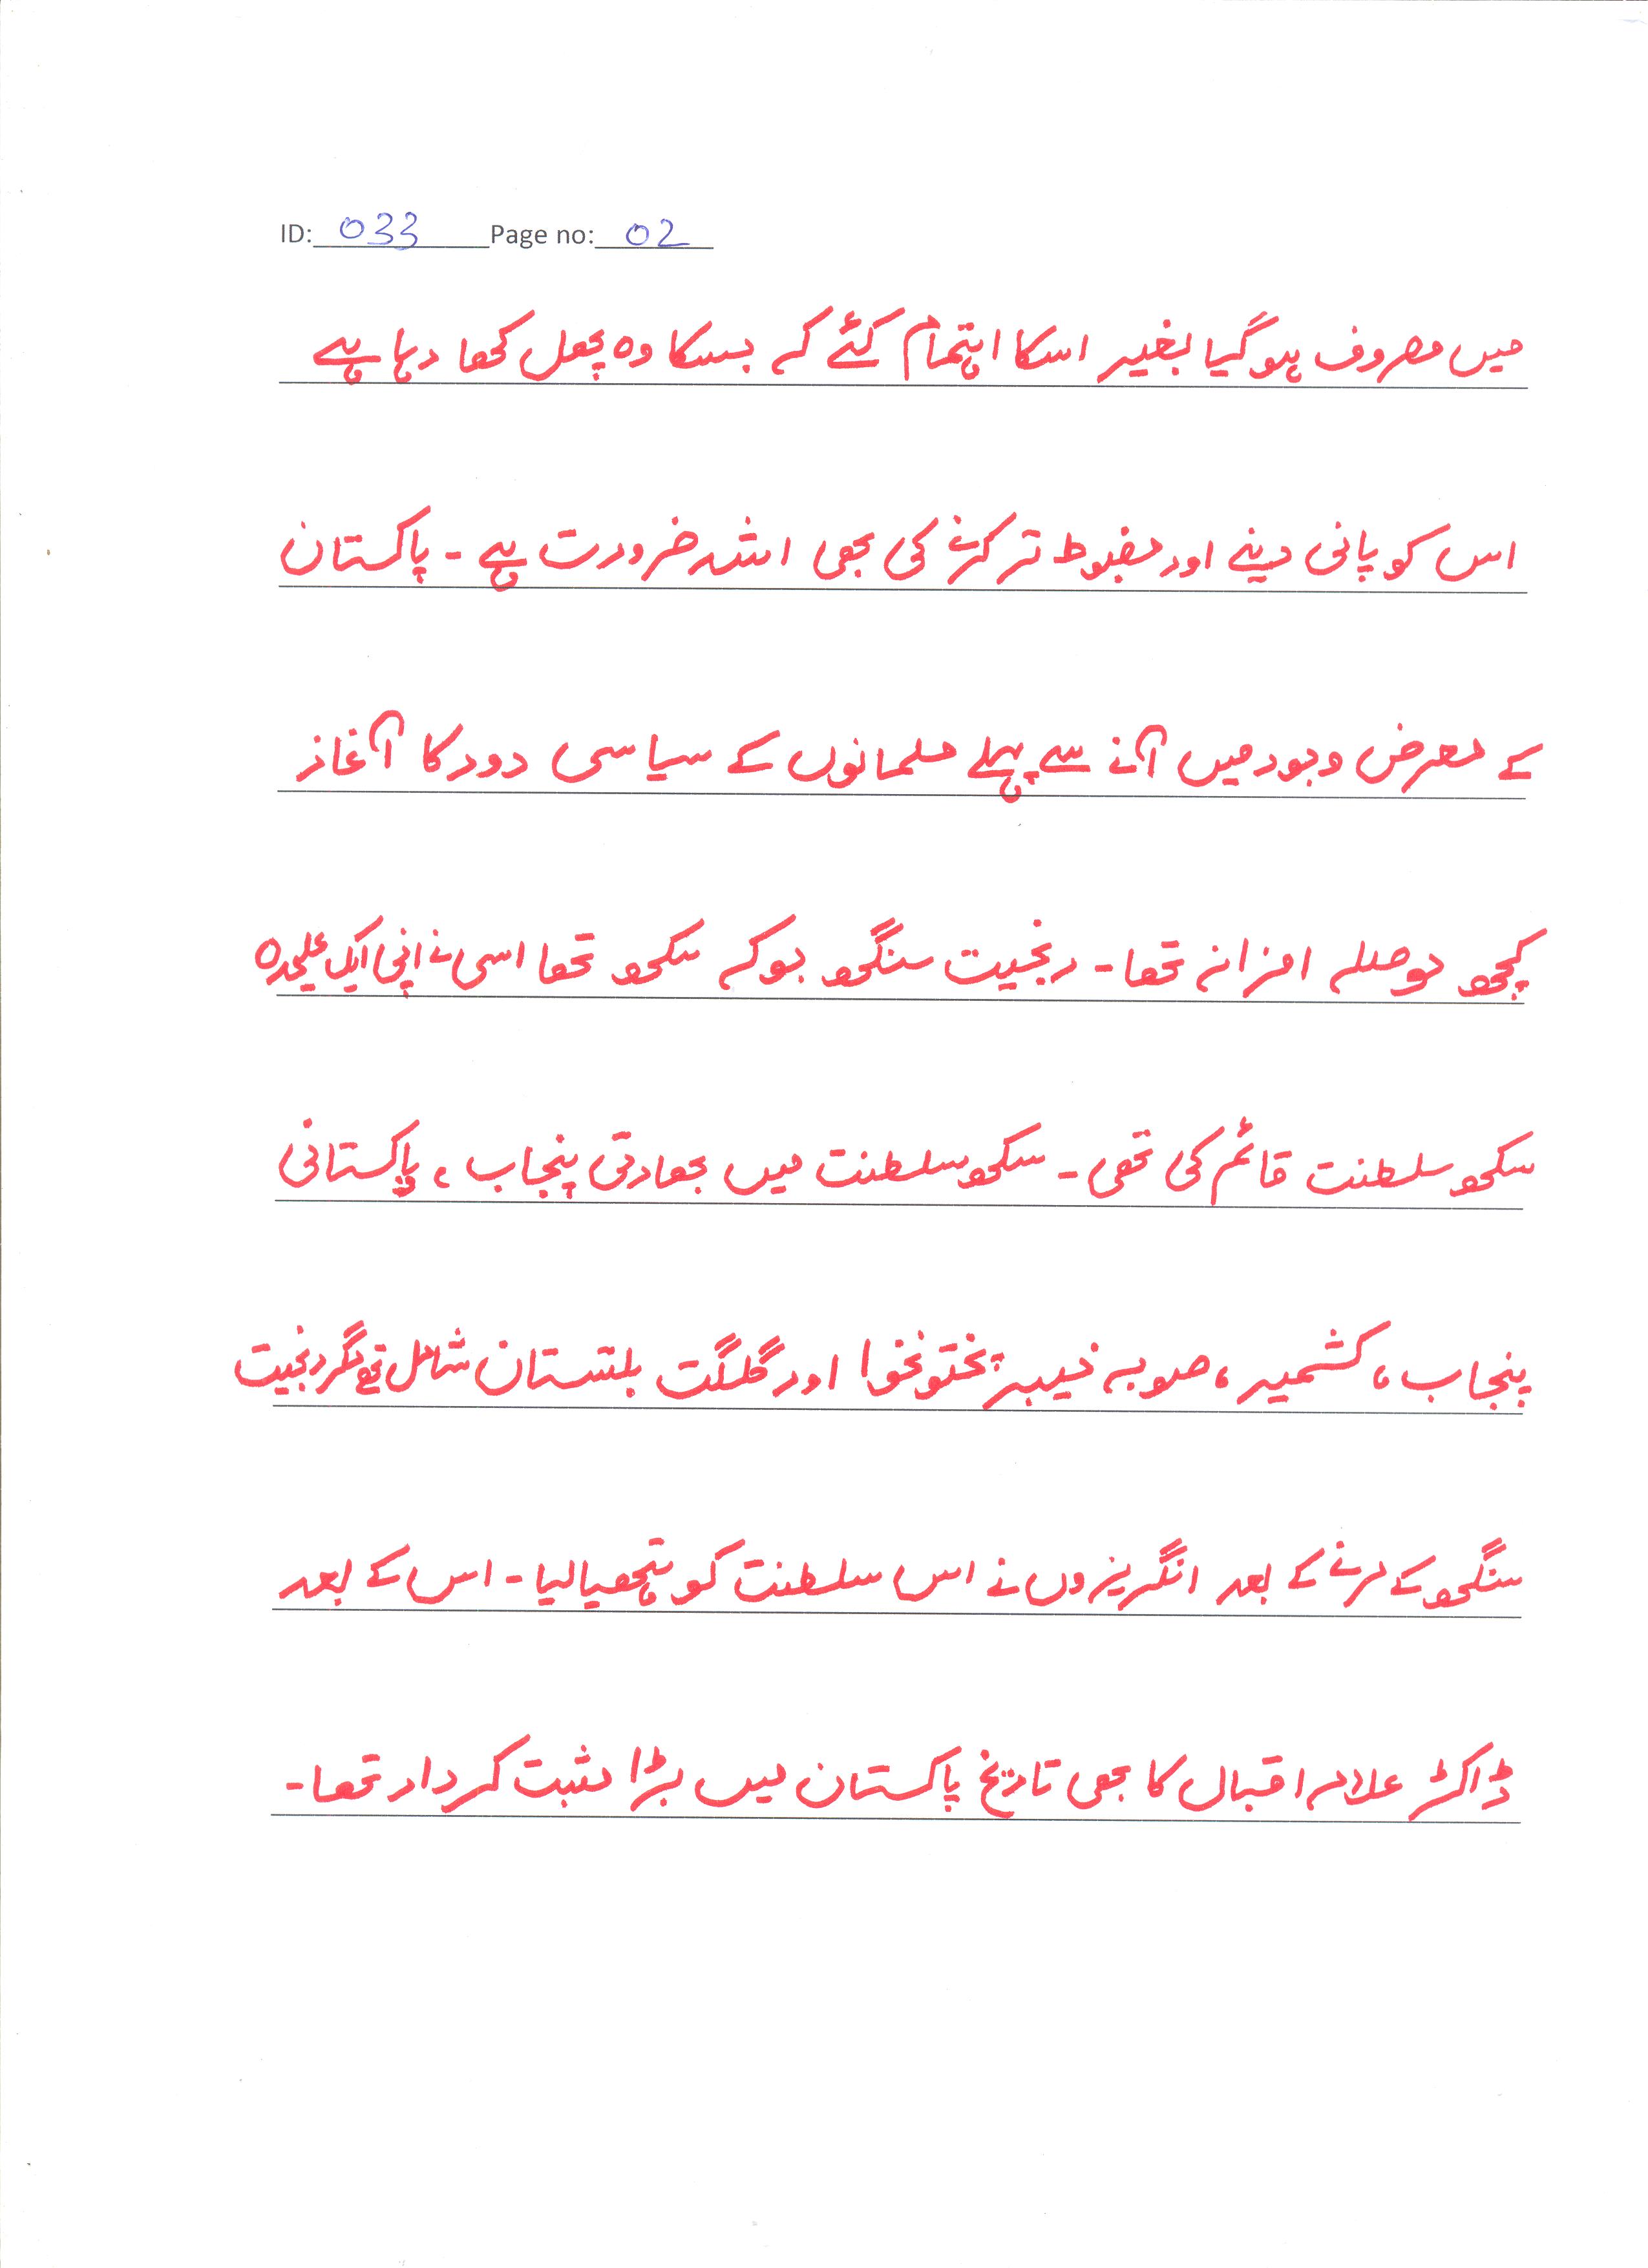 ID: 033 Page no: 02
میں مصروف ہوگیا بغیر اسکا اہتمام کئے کہ جسکا وہ پھل کھا رہا ہے
اس کو پانی دینے اور مضبوط تر کرنے کی بھی اشد ضرورت ہے ۔ پاکستان
کے معرض وجود میں آنے سے پہلے مسلمانوں کے سیاسی دور کا آغاز
کچھ حوصلہ افزا نہ تھا ۔ رنجیت سنگھ جو کہ سکھ تھا اسی نے اپنی ایک علیحدہ
سکھ سلطنت قائم کی تھی ۔ سکھ سلطنت میں بھارتی پنجاب ، پاکستانی
پنجاب ، کشمیر ، صوبہ خیبر پختونخوا اور گلگت بلتستان شامل تھے مگر رنجیت
سنگھ کے مرنے کے بعد انگریزوں نے اس سلطنت کو ہتھیا لیا ۔ اس کے بعد
ڈاکٹر علامہ اقبال کا بھی تاریخ پاکستان میں بڑا مثبت کردار تھا ۔